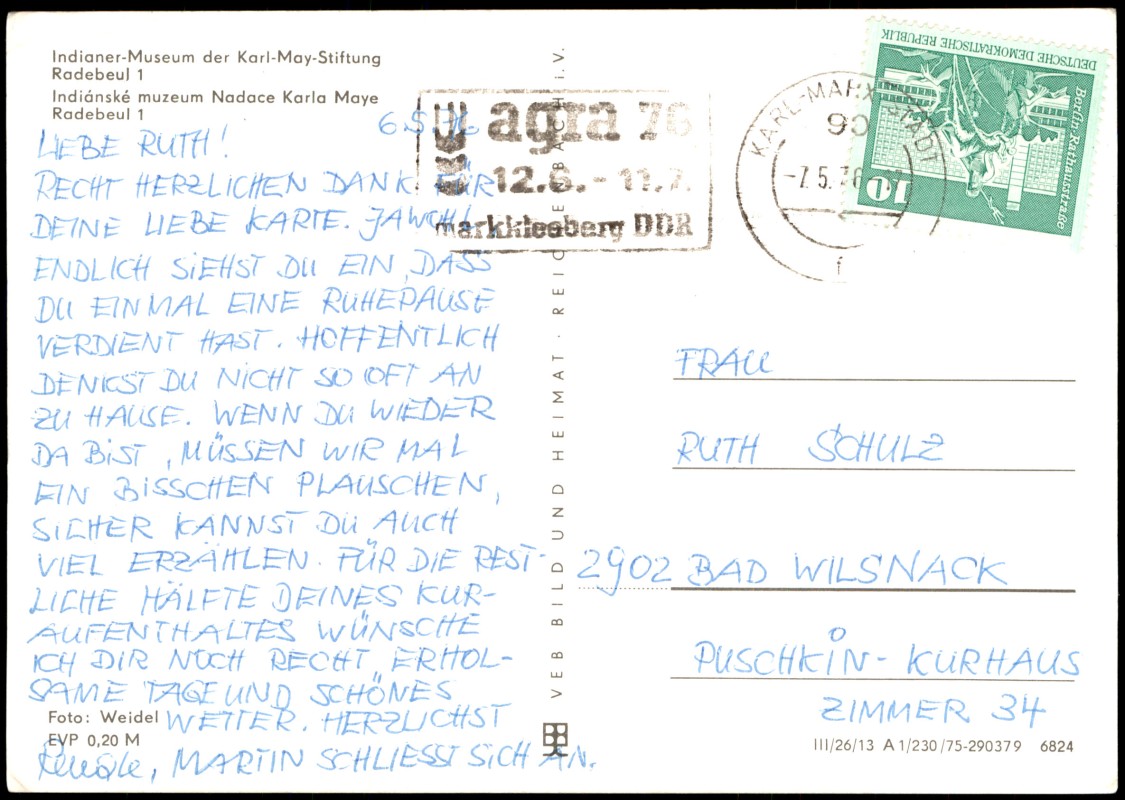 Indianer-Museum der Karl-May-Stiftung
Radebeul 1
Indiánské muzeum Nadace Karla Maye
Radebeul 1
6.5.76
LIEBE RUTH!
RECHT HERZLICHEN DANK FÜR
DEINE LIEBE KARTE. JAWOHL
ENDLICH SIEHST DU EIN, DASS
DU EINMAL EINE RUHEPAUSE
VERDIENT HAST. HOFFENTLICH
DENKST DU NICHT SO OFT AN
ZU HAUSE. WENN DU WIEDER
DA BIST, MÜSSEN WIR MAL
EIN BISSCHEN PLAUSCHEN,
SICHER KANNST DU AUCH
VIEL ERZÄHLEN. FÜR DIE REST-
LICHE HÄLFTE DEINES KUR-
AUFENTHALTES WÜNSCHE
ICH DIR NOCH RECHT ERHOL-
SAME TAGE UND SCHÖNES
WETTER. HERZLICHST
MARTIN SCHLIESST SICH AN.
Foto: Weidel
EVP 0,20 M
VEB BILD UND HEIMAT · REICHENBACH i.V.
agra 76
12.6. - 11.7.
Markkleeberg DDR
KARL-MARX-STADT
90
-7.5.76
f
DEUTSCHE DEMOKRATISCHE REPUBLIK
Berlin-Rathausstraße
10
FRAU
RUTH SCHULZ
2902 BAD WILSNACK
PUSCHKIN-KURHAUS
ZIMMER 34
III/26/13 A 1/230/75-290379 6824